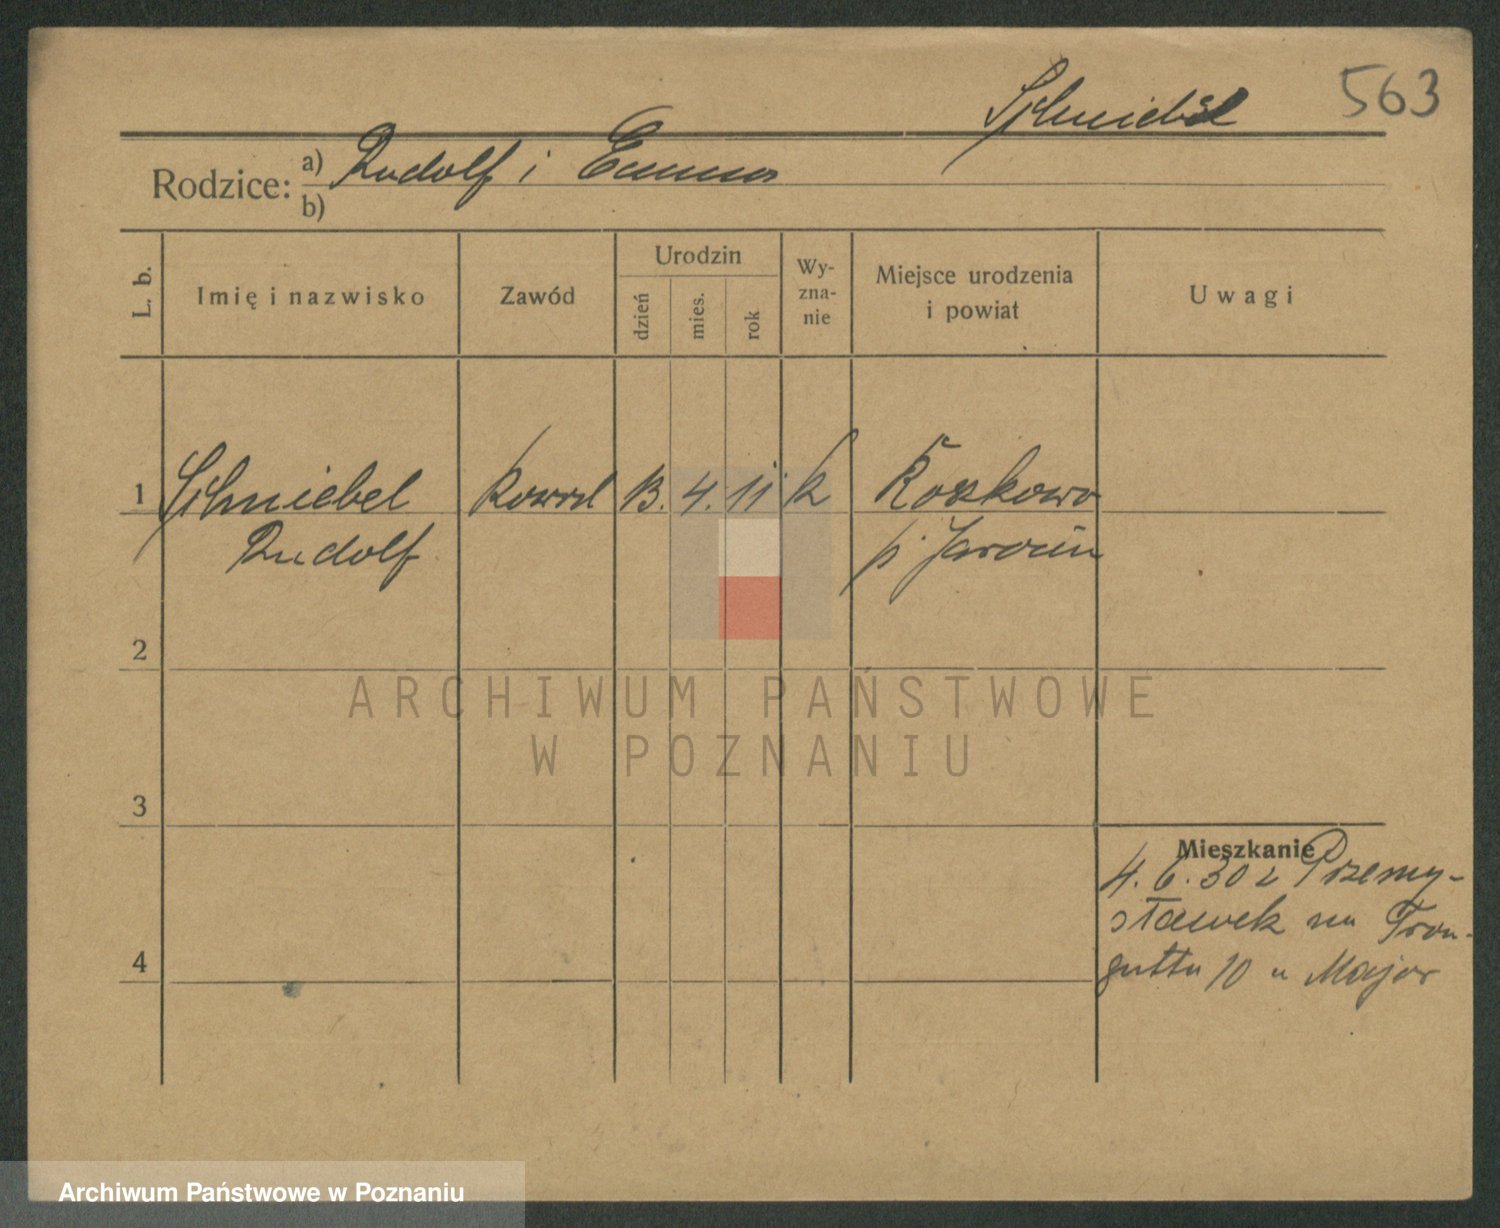 563
Schniebel
Rodzice: a) Rudolf i Emma
b)
L. b.
Imię i nazwisko
Zawód
Urodzin
dzień
mies.
rok
Wy-
zna-
nie
Miejsce urodzenia
i powiat
Uwagi
1 Schniebel kowal 13. 4. 11 k Roszkowo
Rudolf p. Jarocin
2
ARCHIWUM PAŃSTWOWE
W POZNANIU
3
Mieszkanie
4. 6. 30 z Przemy-
sławek na Trau-
gutta 10 u Major
4
Archiwum Państwowe w Poznaniu